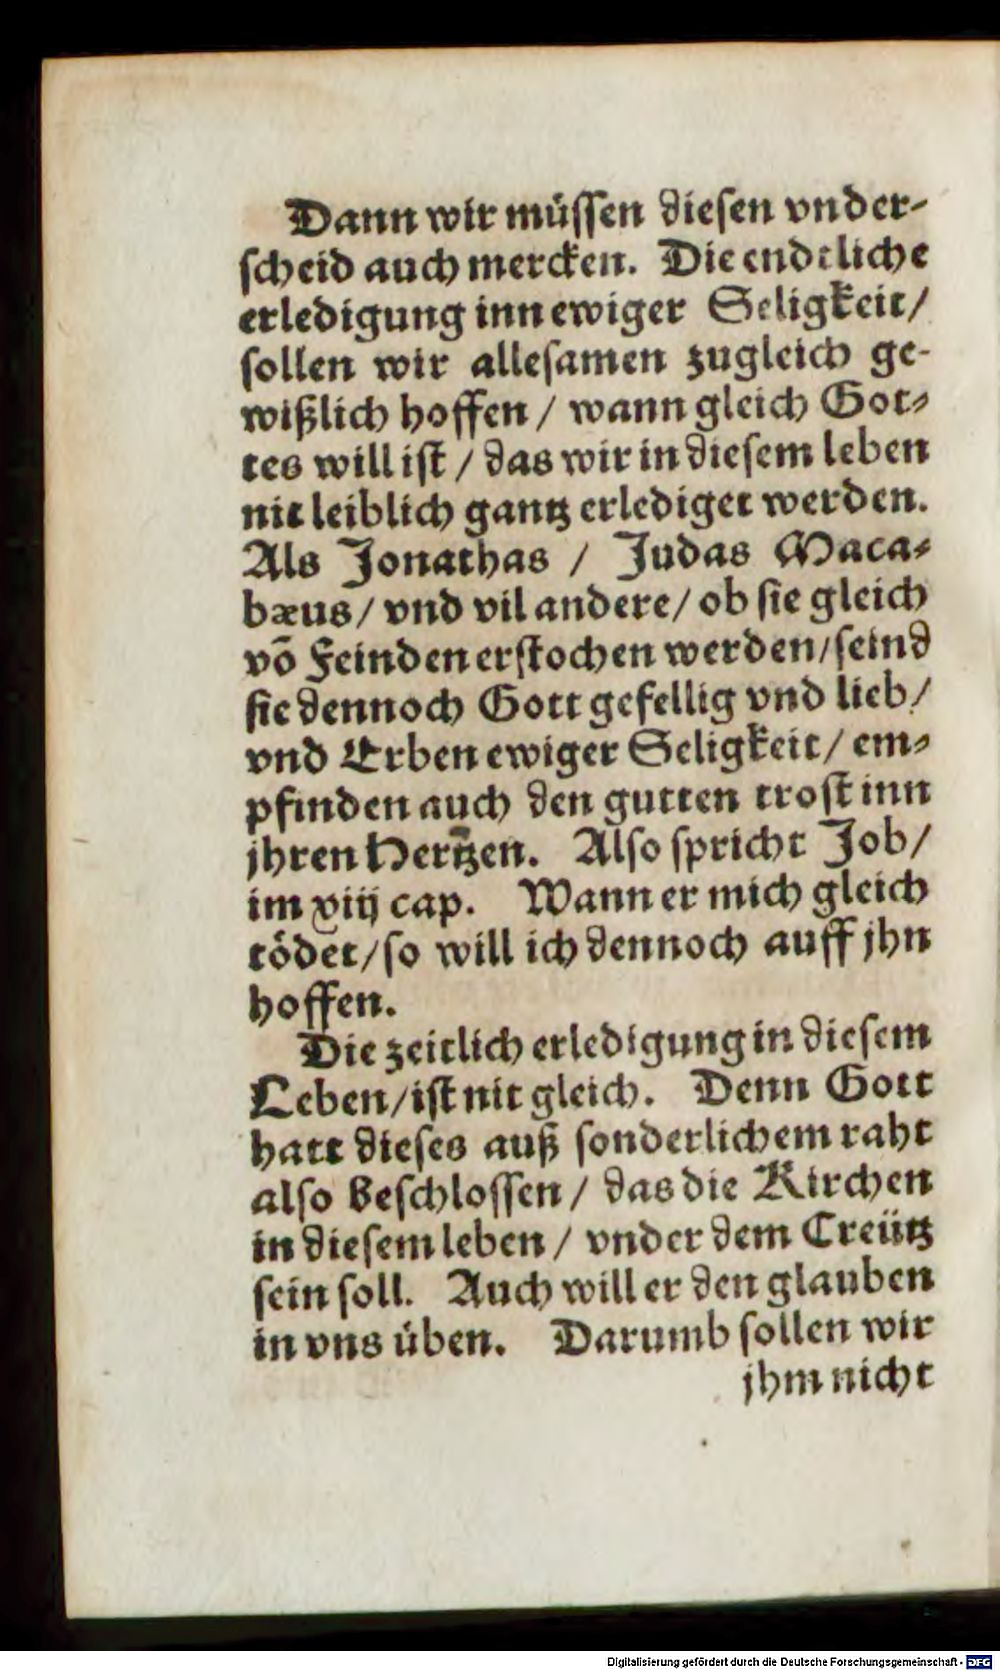 Dann wir müssen diesen vnder-
scheid auch mercken. Die endtliche
erledigung inn ewiger Seligkeit/
sollen wir allesamen zugleich ge-
wißlich hoffen / wann gleich Got-
tes will ist / das wir in diesem leben
nit leiblich gantz erlediget werden.
Als Jonathas / Judas Maca-
bæus / vnd vil andere / ob sie gleich
võ Feinden erstochen werden / seind
sie dennoch Gott gefellig vnd lieb /
vnd Erben ewiger Seligkeit / em-
pfinden auch den gutten trost inn
jhren Hertzen. Also spricht Job /
im xiij cap. Wann er mich gleich
tödet / so will ich dennoch auff jhn
hoffen.
Die zeitlich erledigung in diesem
Leben / ist nit gleich. Denn Gott
hatt dieses auß sonderlichem raht
also beschlossen / das die Kirchen
in diesem leben / vnder dem Creütz
sein soll. Auch will er den glauben
in vns üben. Darumb sollen wir
jhm nicht
Digitalisierung gefördert durch die Deutsche Forschungsgemeinschaft - DFG